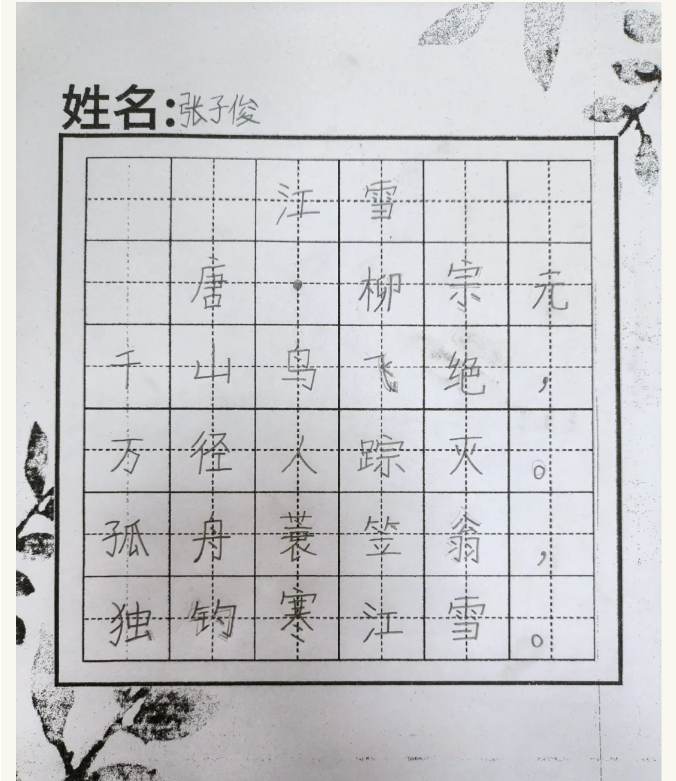 姓名:张子俊
江雪
唐·柳宗元
千山鸟飞绝，
万径人踪灭。
孤舟蓑笠翁，
独钓寒江雪。